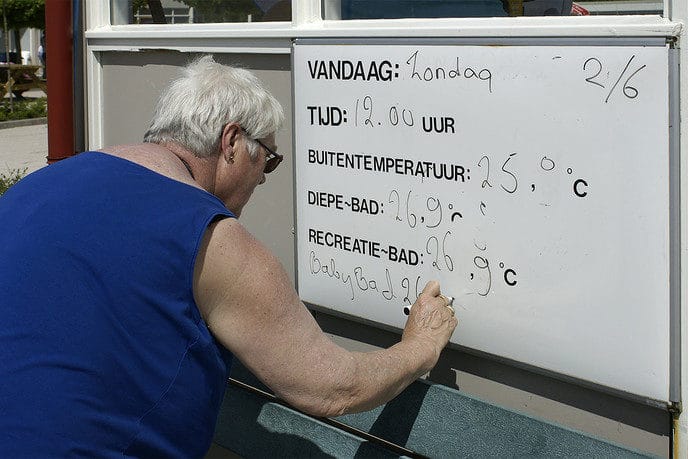 VANDAAG: Zondag 2/6
TIJD: 12.00 UUR
BUITENTEMPERATUUR: 25,0 °C
DIEPE~BAD: 26,9 °C
RECREATIE~BAD: 26,9 °C
BabyBad 26